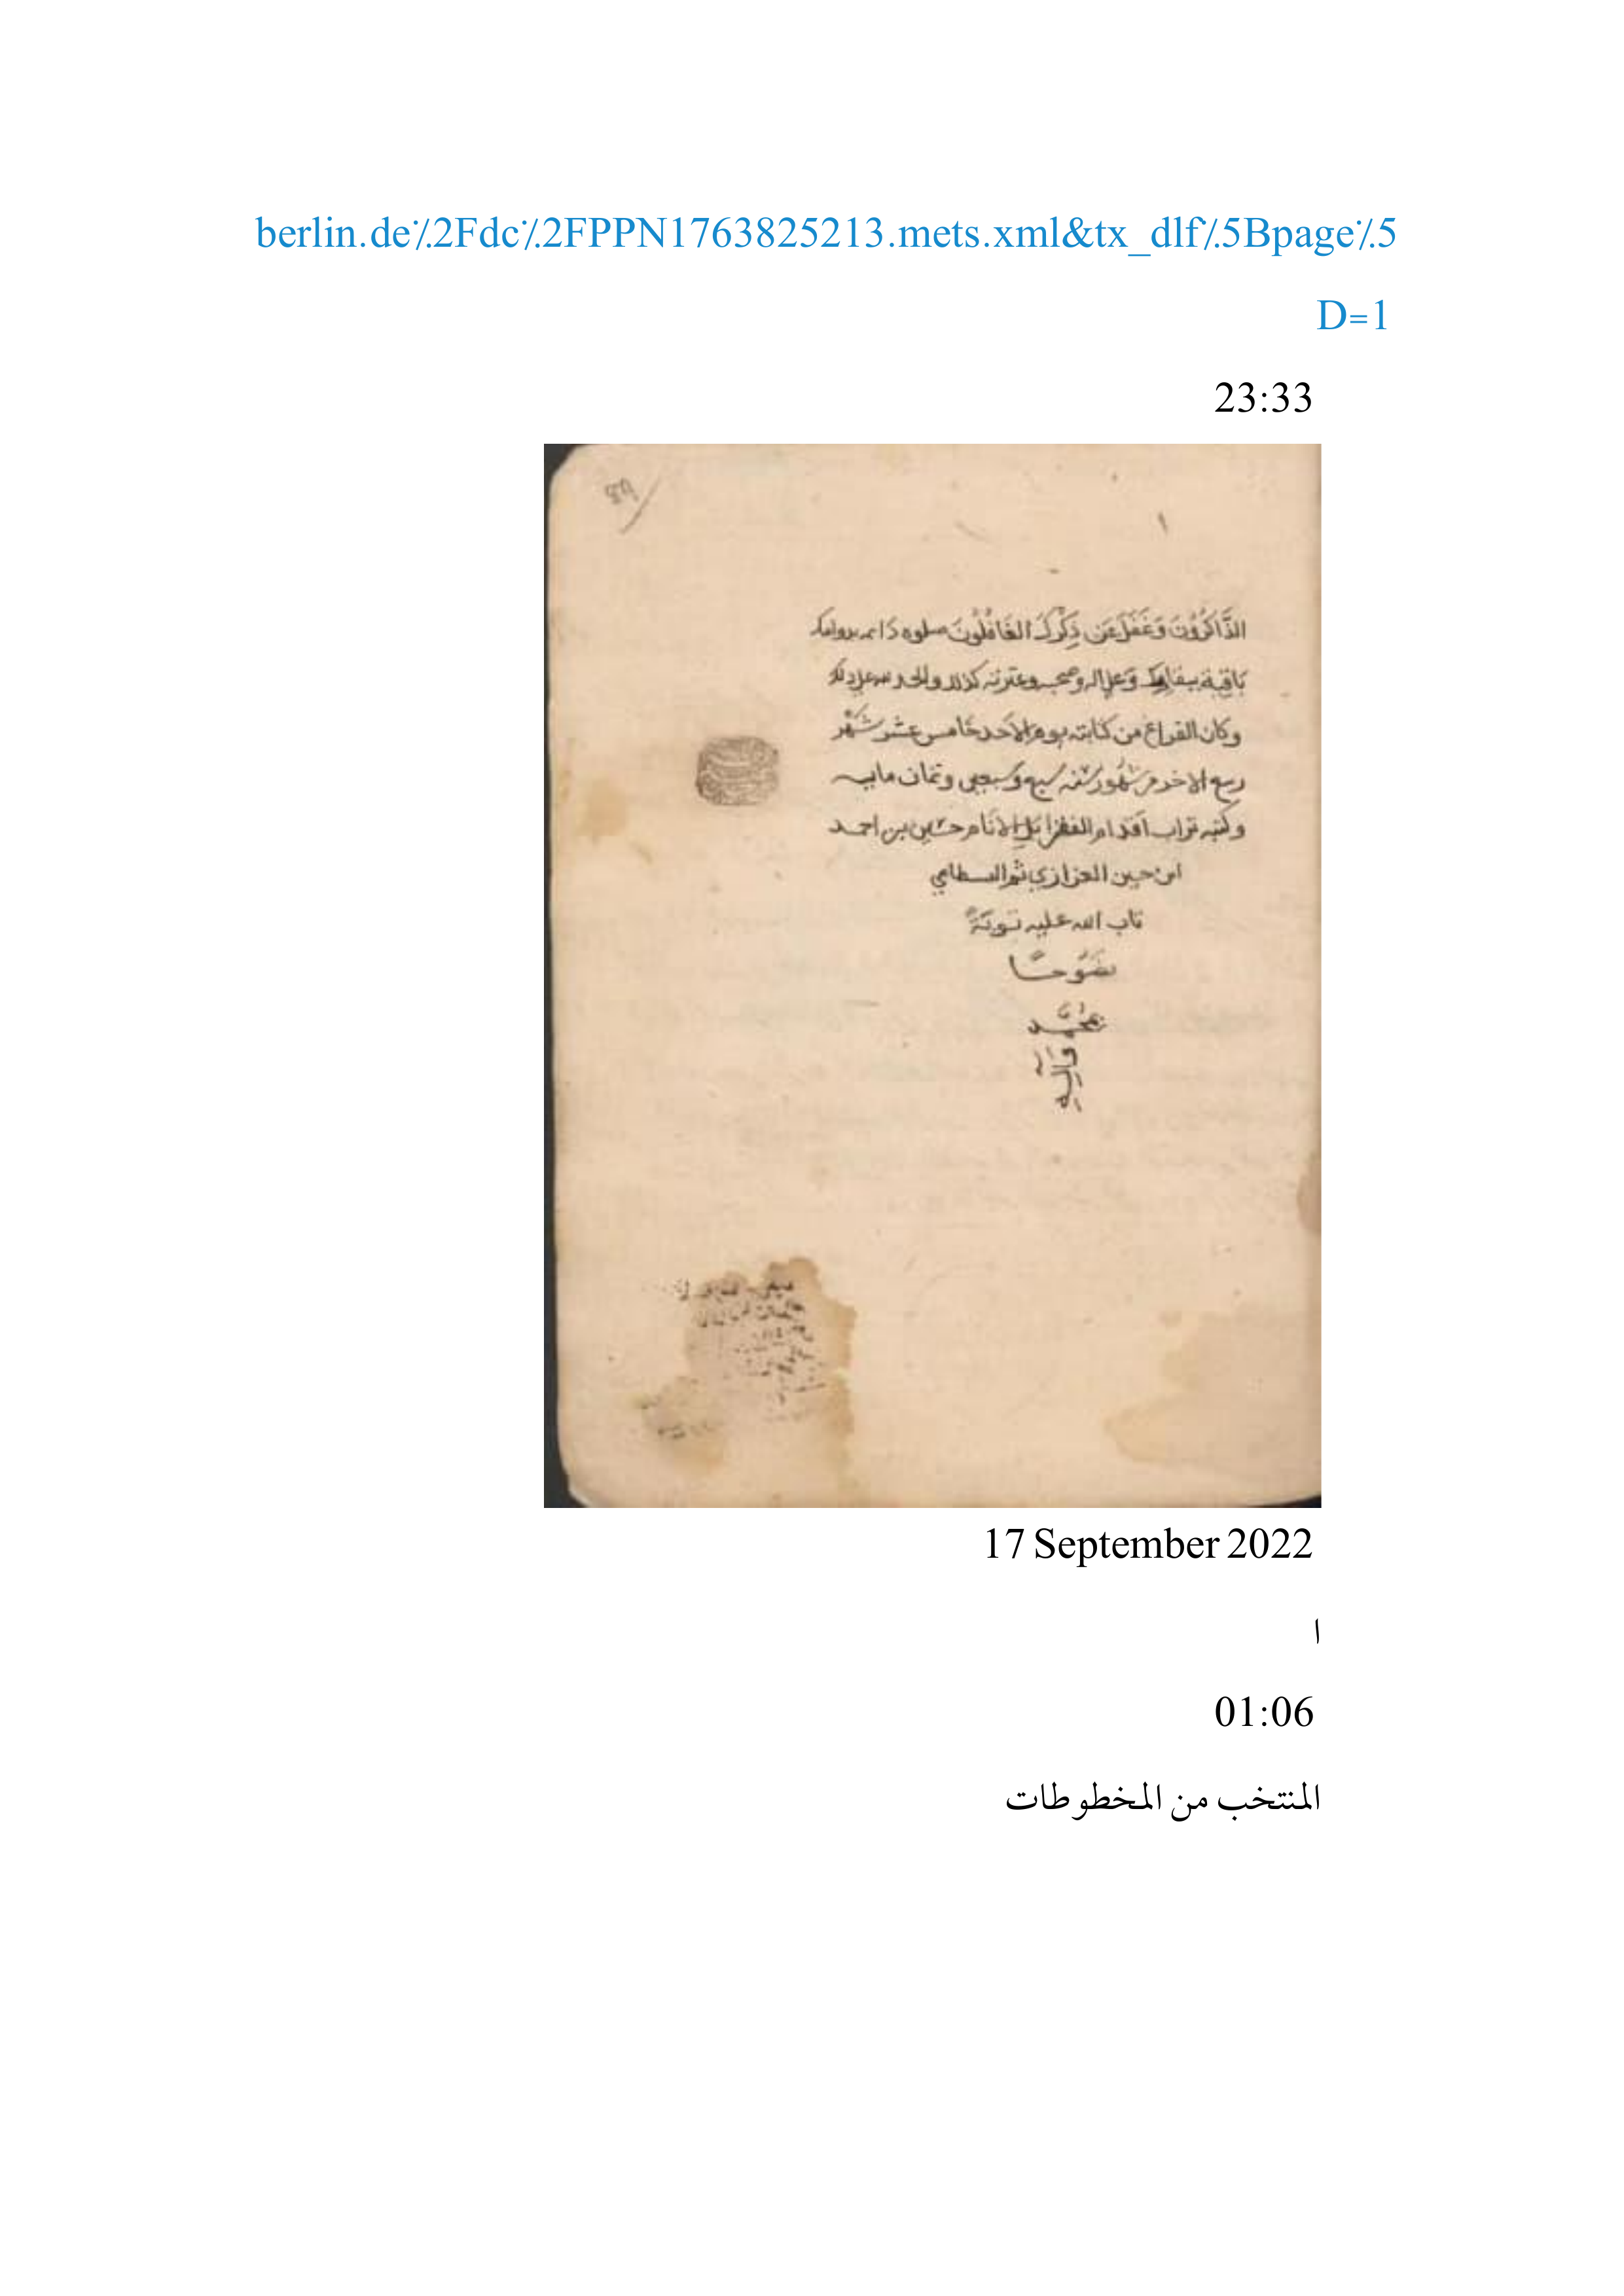 berlin.de%2Fdc%2FPPN1763825213.mets.xml&tx_dlf%5Bpage%5
D=1
23:33
الذَّاكَرُوُنَ وَغَفَلَ عَن ذِكْرِكَ الغَافْلُونَ صلوه دَايمه بدوامك
بَاقية ببقايك وَعلى اله وصحبه وعترته كذلك والحمد لله على ذلك
وكان الفراغ من كتابته يوم الاحد خَامس عشر شَهْر
ربيع الاخر من شهُور سَنه سبع وسبعين وثمان مايه
وكتبه تراب اقدام الفقرا بَل الانَام حسَين بن احمد
ابن حسين العزازي ثم البسطامي
تاب الله عليه توبَةً
نصَوُحًا
بمحمد
وَآلِهِ
17 September 2022
ا
01:06
المنتخب من المخطوطات